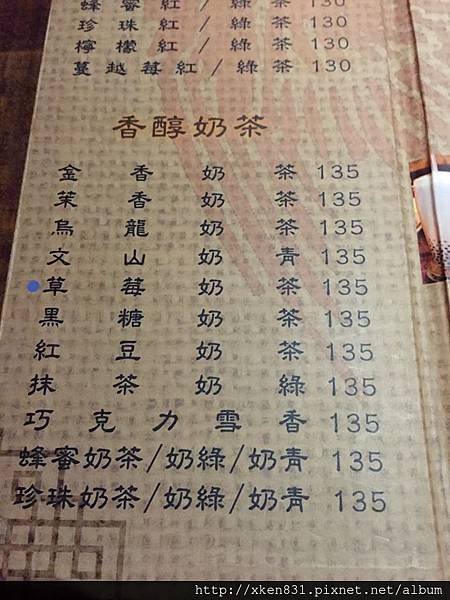 蜂蜜紅/綠茶 130
珍珠紅/綠茶 130
檸檬紅/綠茶 130
蔓越莓紅/綠茶 130
香醇奶茶
金香奶茶 135
茉香奶茶 135
烏龍奶茶 135
文山奶青 135
草莓奶茶 135
黑糖奶茶 135
紅豆奶茶 135
抹茶奶綠 135
巧克力雪香 135
蜂蜜奶茶/奶綠/奶青 135
珍珠奶茶/奶綠/奶青 135
http://xken831.pixnet.net/album